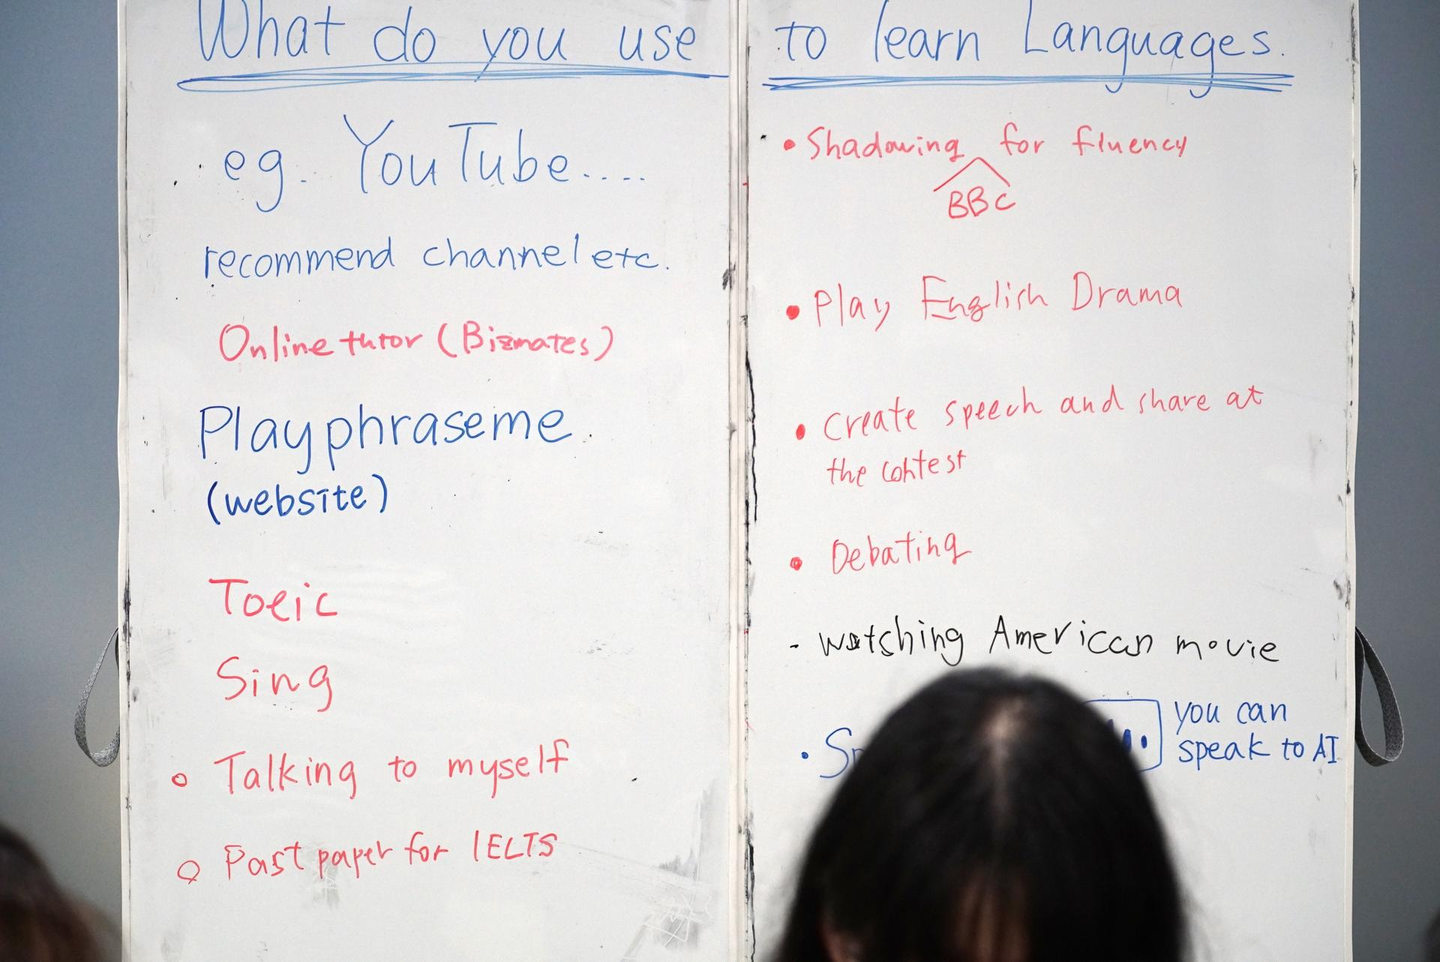 What do you use to learn Languages.
eg. YouTube....
recommend channel etc.
Online tutor (Bizmates)
Playphraseme
(website)
Toeic
Sing
Talking to myself
Past paper for IELTS
• Shadowing for fluency
BBC
• Play English Drama
• Create speech and share at
the contest
• Debating
- watching American movie
you can
speak to AI